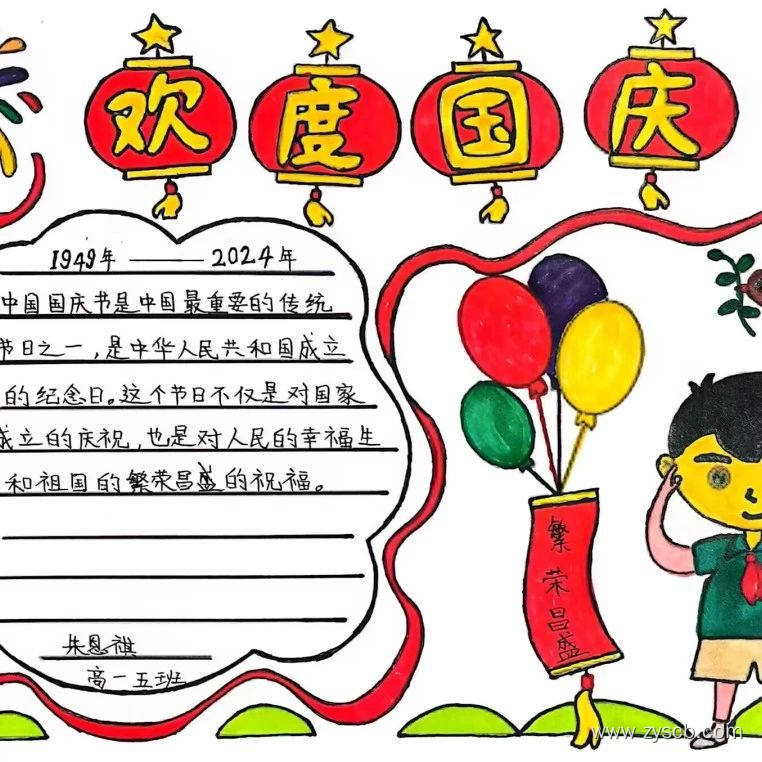 欢度国庆
1949年 —— 2024年
中国国庆节是中国最重要的传统
节日之一，是中华人民共和国成立
的纪念日。这个节日不仅是对国家
成立的庆祝，也是对人民的幸福生
和祖国的繁荣昌盛的祝福。
朱恩祺
高一五班
繁荣昌盛
www.zyscb.com